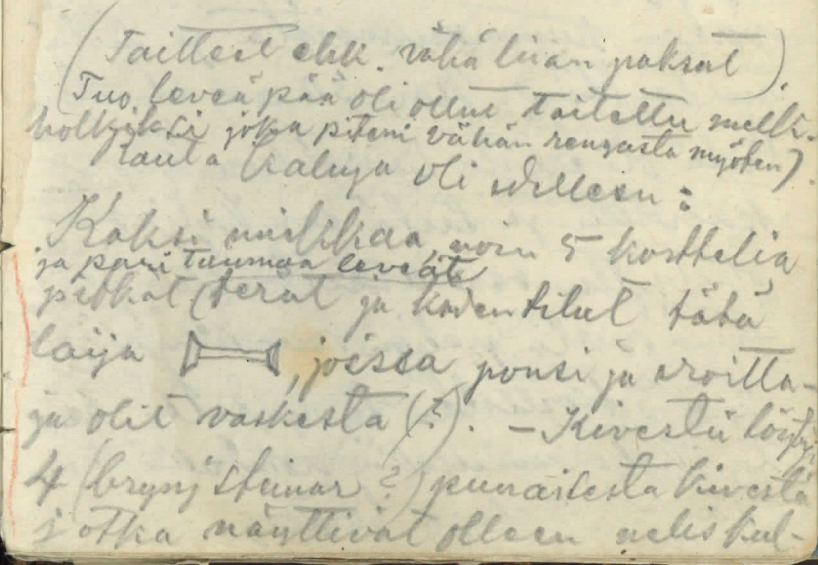 (Taitteet ehk. vähä liian paksut).
(Tuo leveä pää oli ollut taitettu
holkiksi joka piteni vähän rengasta myöten).
rauta kaluja oli
Kaksi miekkaa, noin 5 korttelia
ja pari tuumaa leveät
pitkät (terät ja kädentilat tätä
laija , joissa ponsi ja aroitta-
ja olit vaskesta (?). – Kivestä löytyi
4 (brynj steinar ?) punaisesta kivestä
jotka näyttivät olleen neliskul-